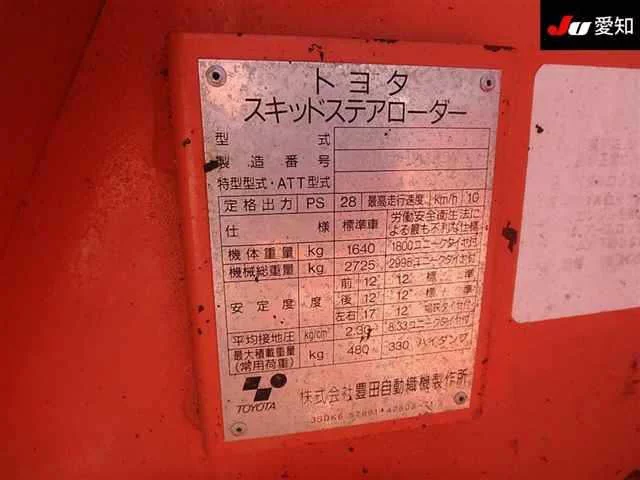 JU 愛知
トヨタ
スキッドステアローダー
型式
製造番号
特型型式・ATT型式
定格出力 PS 28 最高走行速度 Km/h 10
仕様 標準車 労働安全衛生法に
よる最も不利な仕様
機体重量 kg 1640 1800 ユニークタイヤ付
機械総重量 kg 2725 2998 ユニークタイヤ付
安定度 度 前 12 12° 標準
後 12 12° 標準
左右 17 12°
平均接地圧 kg/cm² 8.33 ユニークタイヤ付
最大積載重量
(常用荷重) kg 480 330 ハイダンプ
TOYOTA 株式会社豊田自動織機製作所